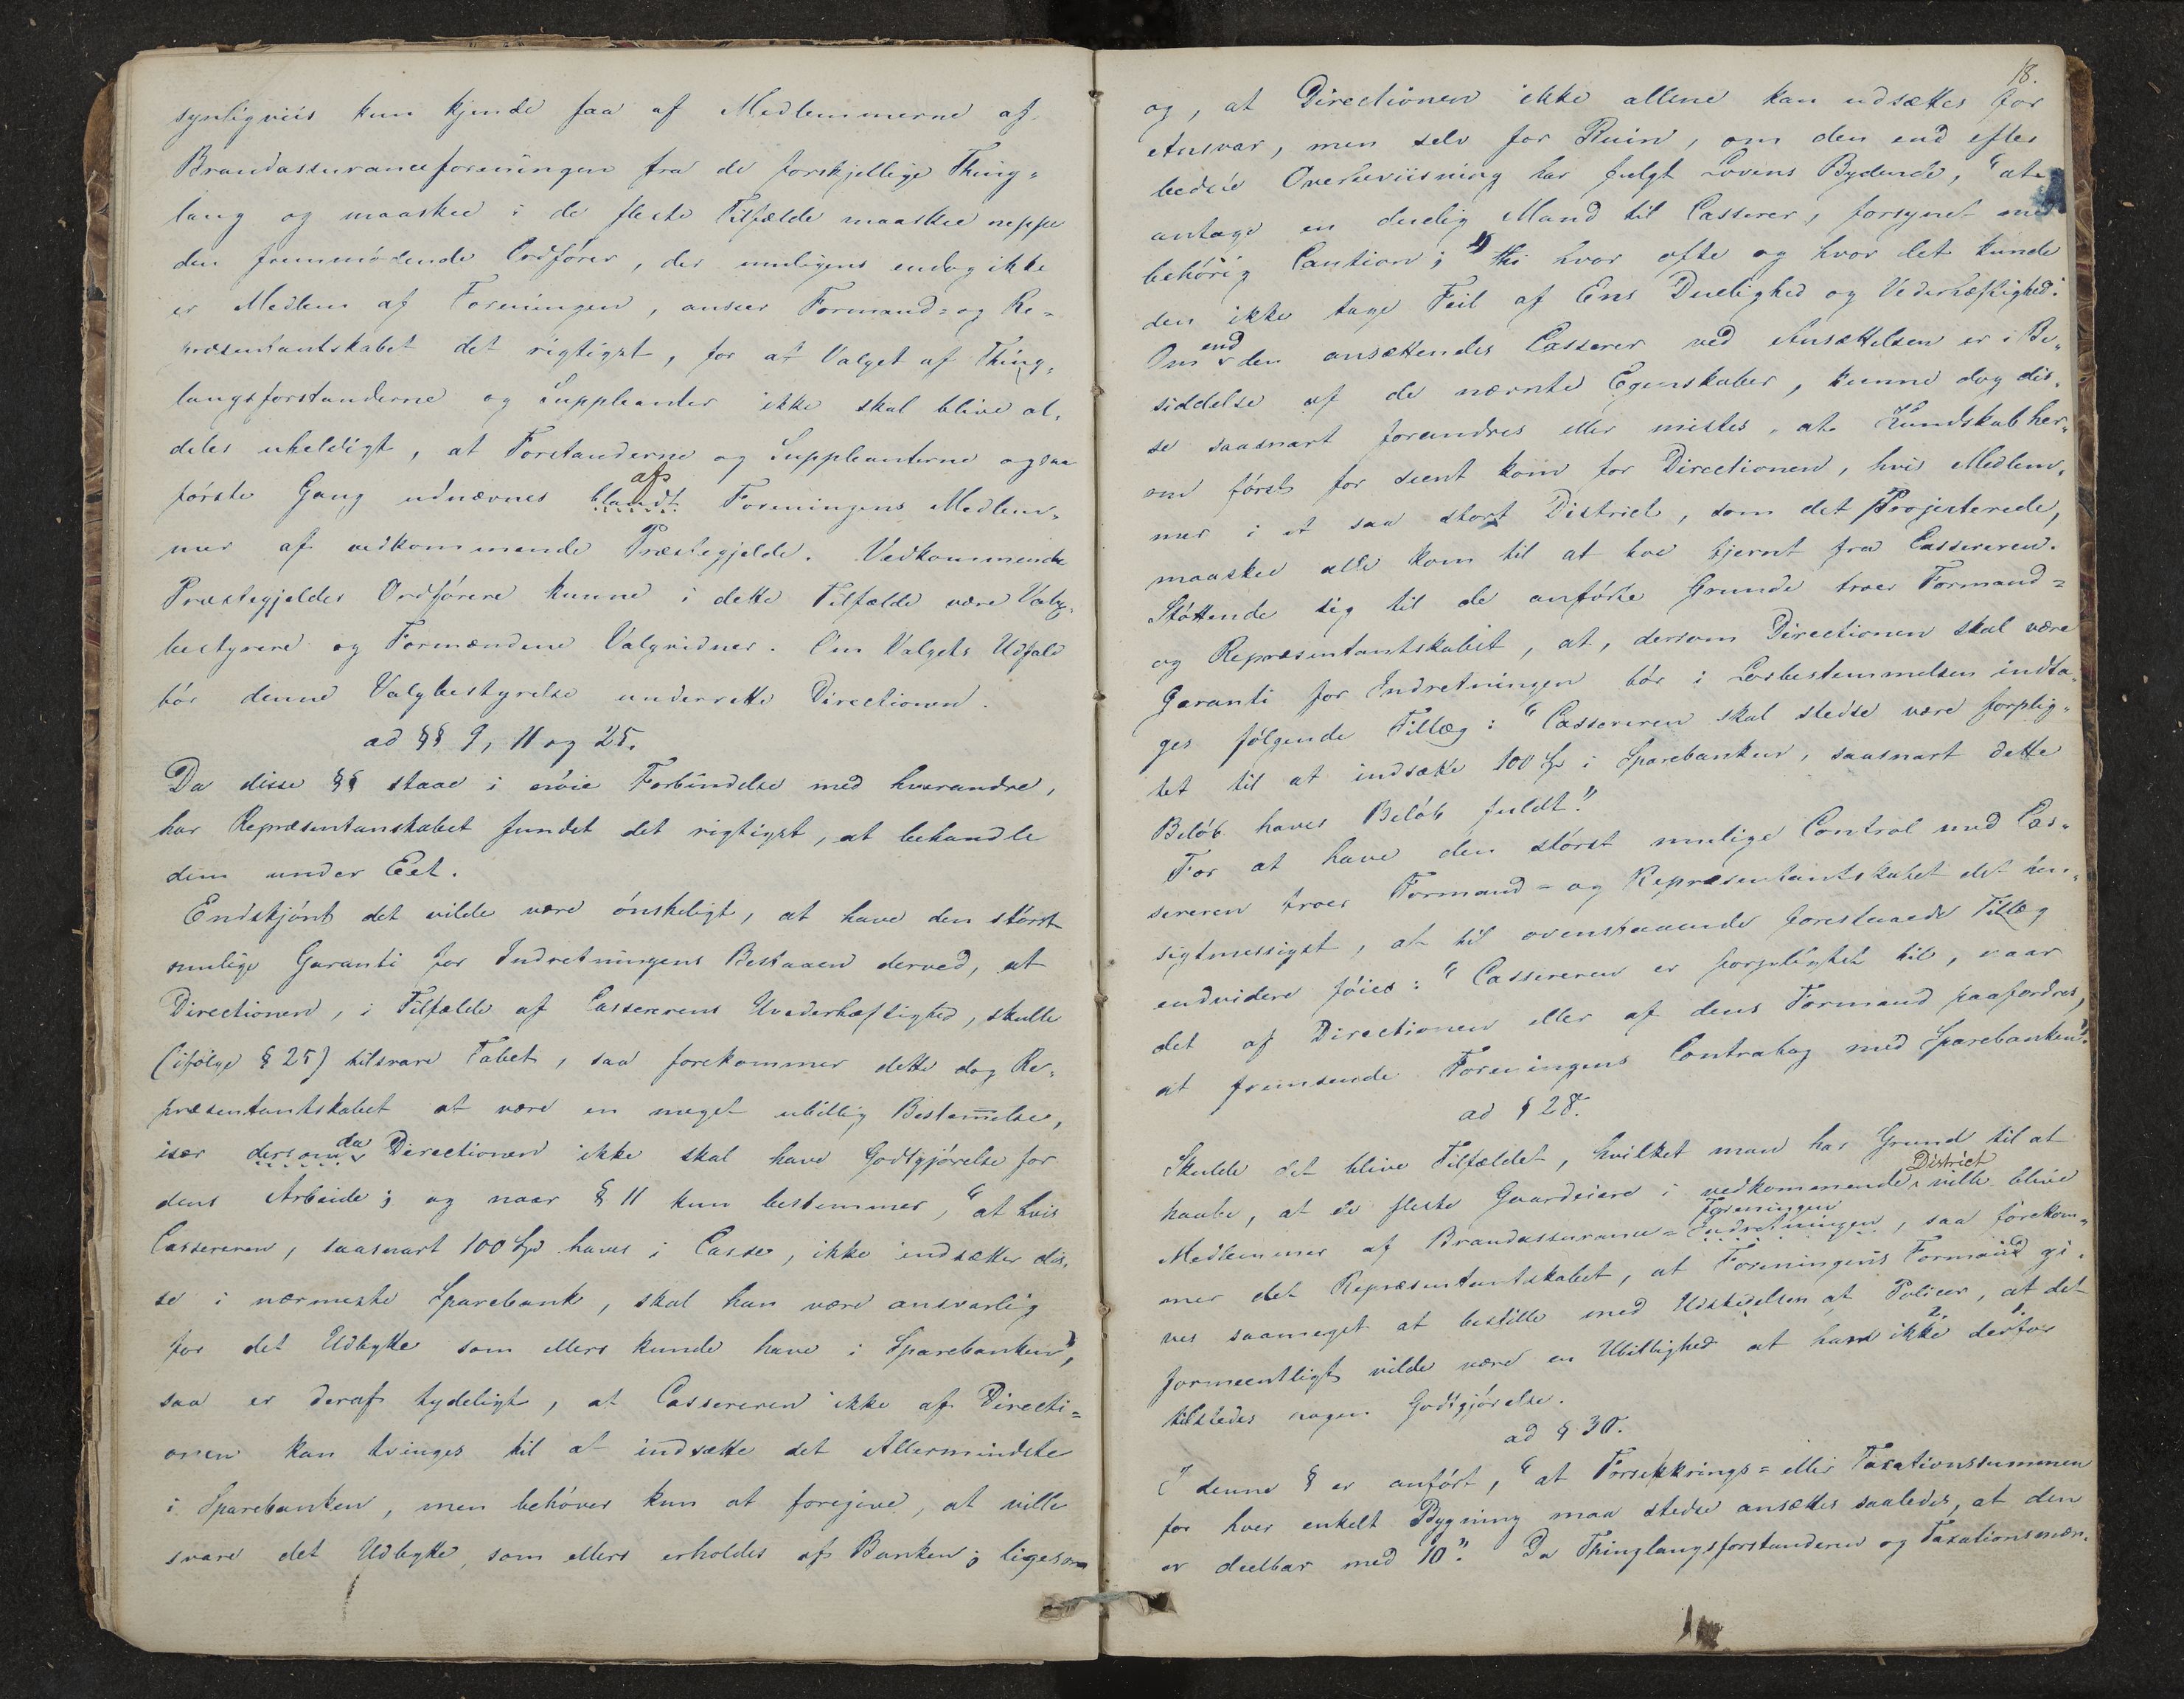 synligviis kun kjende faa af Medlemmerne af
Brandassuranceforeningen fra de forskjellige Thing-
laug og maaskee i de fleste Tilfælde maaskee neppe
den fremmødende Ordfører, der muligens endog ikke
er Medlem af Foreningen, anseer Formand- og Re-
præsentantskabet det rigtigst, for at Valget af Thing-
laugsforstanderne og Suppleanter ikke skal blive al-
deles uheldigt, at Forstanderne og Suppleanterne ogsaa
af
første Gang udnævnes blandt Foreningens Medlem-
mer af vedkommende Præstegjelde. Vedkommende
Præstegjeldes Ordførere kunne i dette Tilfælde være Valg-
bestyrere og Formændene Valgvidner. Om Valgets Udfald
bør denne Valgbestyrelse underrette Directionen.
ad §§ 9, 11 og 25.
Da disse §§ staae i nøie Forbindelse med hverandre,
har Repræsentanskabet fundet det rigtigst, at behandle
dem under Eet.
Endskjønt det vilde være ønskeligt, at have den størst
mulige Garanti for Indretningens Bestaaen derved, at
Directionen, i Tilfælde af Cassererens Uvederhæftighed, skulle
(ifølge § 25) tilsvare Tabet, saa forekommer dette dog Re-
præsentantskabet at være en meget ubillig Bestemelse,
da
især dersom Directionen ikke skal have Godtgjørelse for
dens Arbeide; og naar § 11 kun bestemmer, "at hvis
Cassereren, saasnart 100 Spd haves i Casse, ikke indsætter dis-
se i nærmeste Sparebank, skal han være ansvarlig
for det Udbytte som ellers kunde have i Sparebanken",
saa er deraf tydeligt, at Cassereren ikke af Directi-
onen kan tvinges til at indsætte det Allermindste
i Sparebanken, men behøver kun at foregive, at ville
svare det Udbytte, som ellers erholdes af Banken; ligesom
18.
og, at Directionen ikke allene kan udsættes for
Ansvar, men selv for Ruin, om den end efter
bedste Overbeviisning har fulgt Lovens Bydende, "at
antage en duelig Mand til Casserer, forsynet med
behørig Caution;" thi hvor ofte og hvor let kunde
den ikke tage Feil af Ens Duelighed og Vederhæftighed.
end
Om den ansættendes Casserer ved Ansættelsen er i Be-
siddelse af de nævnte Egenskaber, kunne dog dis-
se saasnart forandres eller mistes, at Kundskab her-
om først for seent kom for Directionen, hvis Medlem-
mer i et saa stort District, som det Projecterede,
maaskee alle kom til at boe fjernt fra Cassereren.
Støttende sig til de anførte Grunde troer Formand-
og Repræsentantskabet, at, dersom Directionen skal være
Garanti for Indretningen bør i Lovbestemmelsen indta-
ges følgende Tillæg: "Cassereren skal stedse være forplig-
tet til at indsætte 100 Spd i Sparebanken, saasnart dette
Beløb haves Beløb fuldt."
For at have den størst mulige Control med Cas-
sereren troer Formand- og Repræsentantskabet det hen-
sigtmessigst, at til ovenstaaende foreslaaede Tillæg
endvidere føies: "Cassereren er forpligtet til, naar
det af Directionen eller af dens Formand paafordres,
at fremsende Foreningens Contrabog med Sparebanken".
ad § 28.
Skulde det blive Tilfældet, hvilket man har Grund til at
District
haabe, at de fleste Gaardeiere i vedkommende ville blive
Foreningen
Medlemmer af Brandassurance-Indretningen, saa forekom-
mer det Repræsentantskabet, at Foreningens Formand gi-
ves saameget at bestille med Udstedelsen af Policer, at det
2. 1.
formeentligt vilde være en Ubillighed at han ikke derfor
tilstedes nogen Godtgjørelse.
ad § 30.
I denne § er anført, "at Forsikkrings- eller Taxationssummen
for hver enkelt Bygning maa stedse ansættes saaledes, at den
er deelbar med 10". Da Thinglaugsforstanderen og Taxationsmæn-